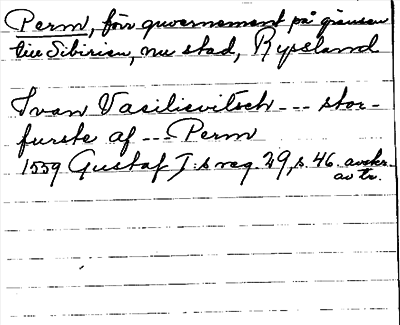 Perm, förr guvernement på gränsen
till Sibirien, nu stad, Ryssland
Ivan Vasilievitsch --- stor-
furste af -- Perm
1559 Gustaf I:s reg. 29, s. 46. avskr.
av tr.